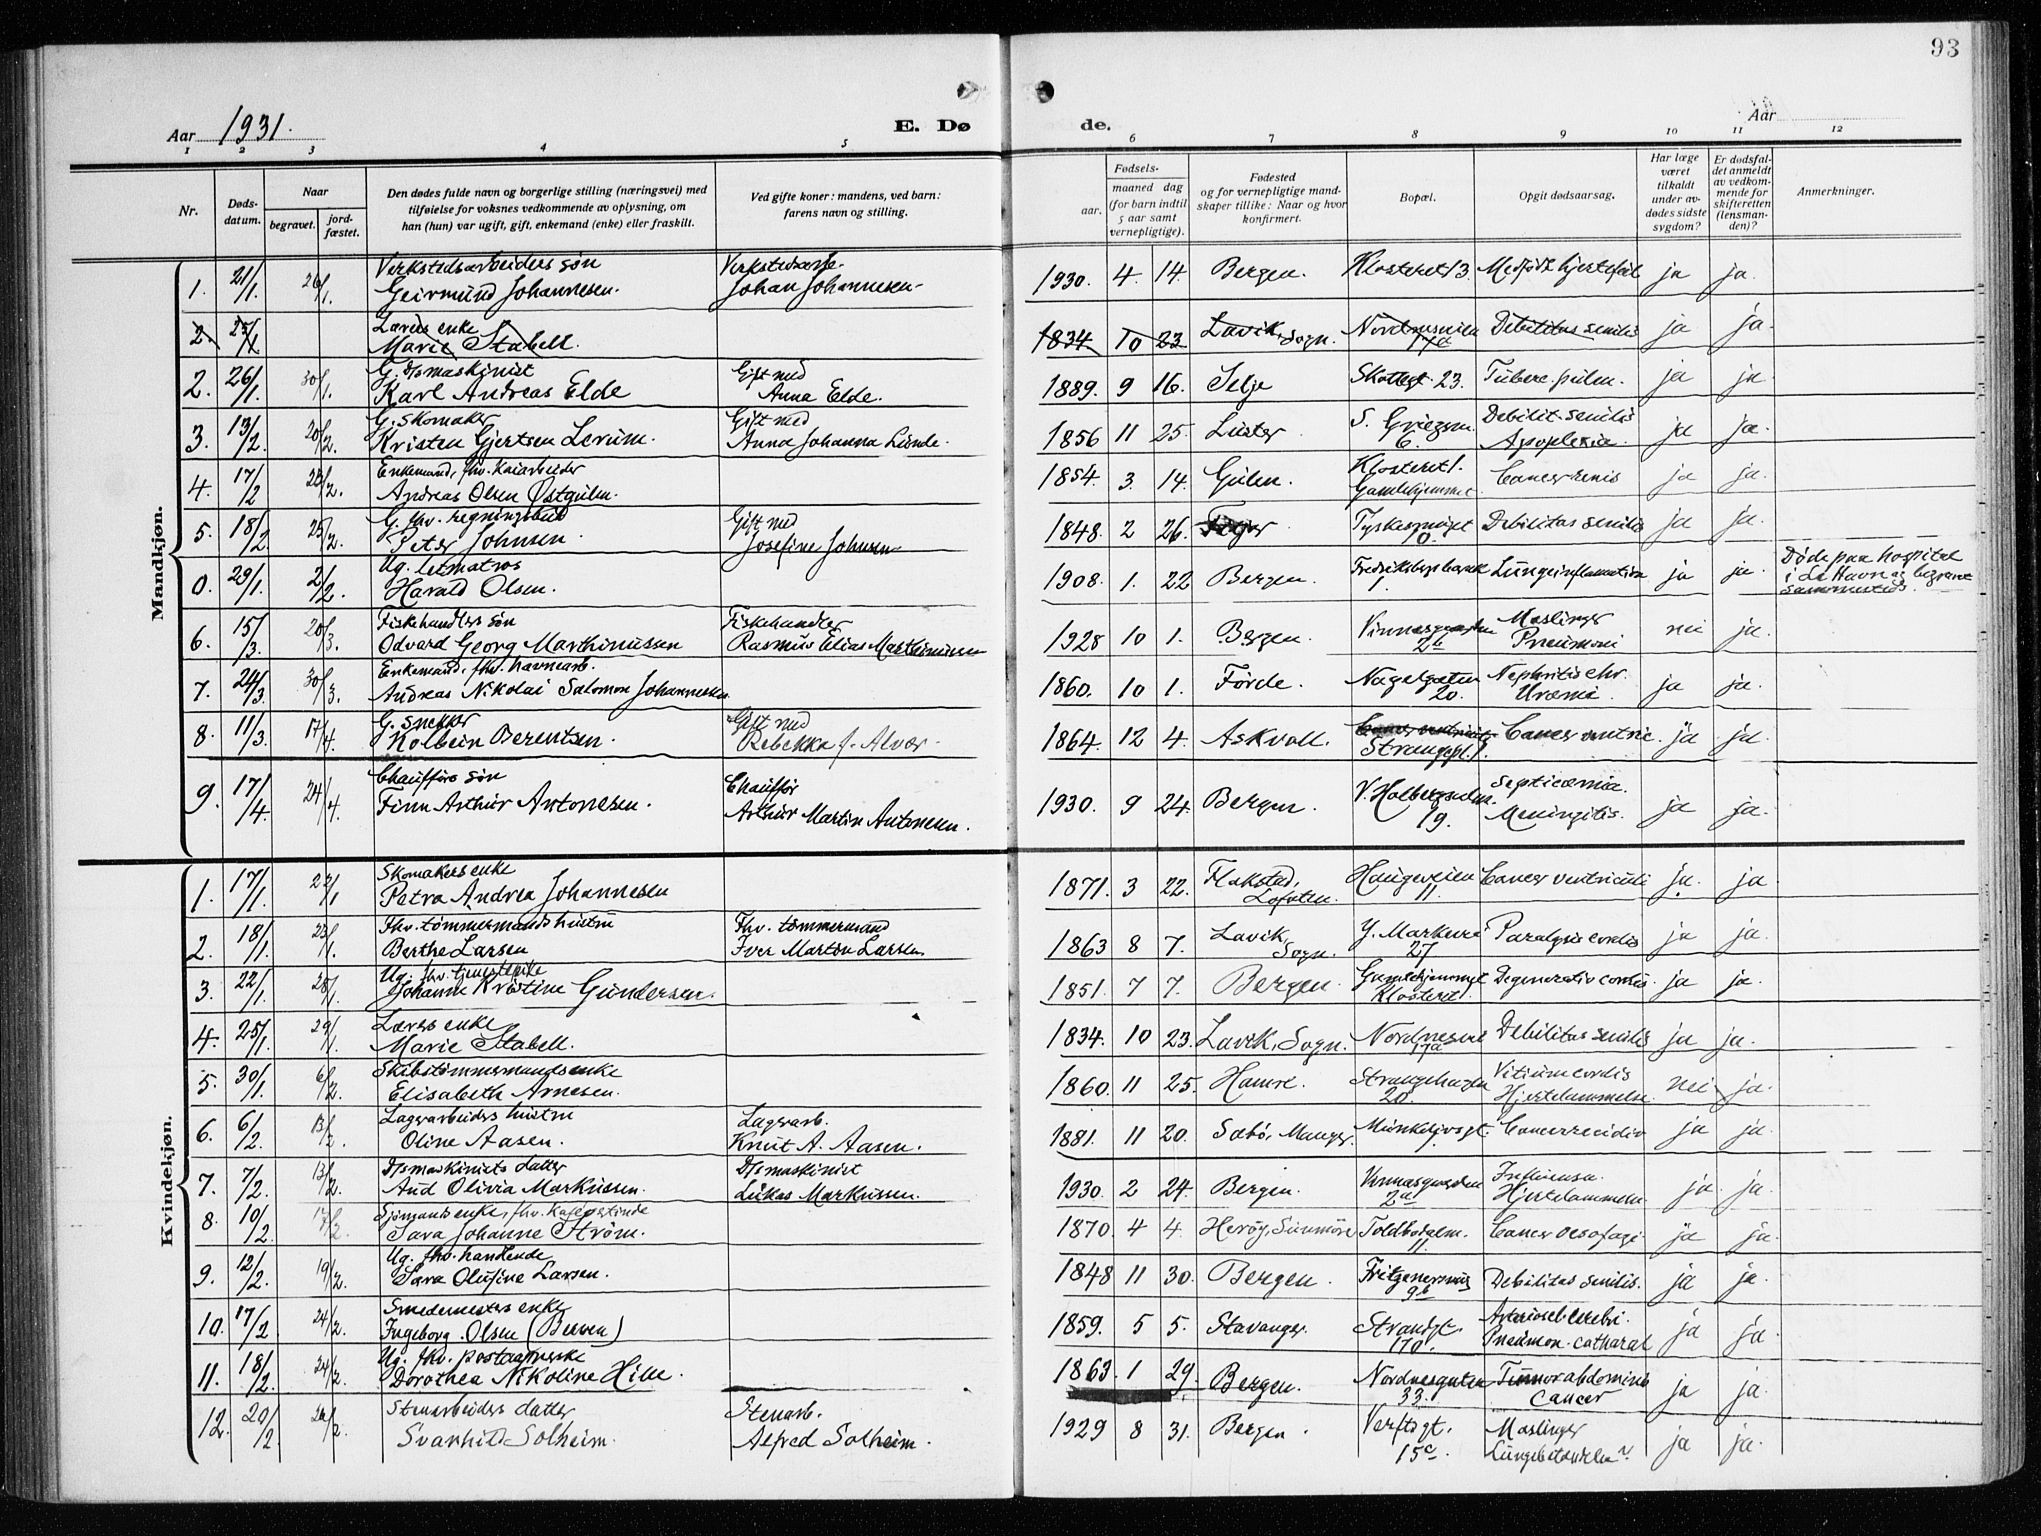 93
Aar 1931.
E. Dø
de.
Aar
1 2 3 4 5 6 7 8 9 10 11 12
Nr.
Døds-
datum.
Naar
begravet.
jord-
fæstet.
Den dødes fulde navn og borgerlige stilling (næringsvei) med
tilføielse for voksnes vedkommende av oplysning, om
han (hun) var ugift, gift, enkemand (enke) eller fraskilt.
Ved gifte koner: mandens, ved barn:
farens navn og stilling.
Fødsels-
aar.
maaned dag
(for barn indtil
5 aar samt
vernepligtige).
Fødested
og for vernepligtige mand-
skaper tillike: Naar og hvor
konfirmert.
Bopæl.
Opgit dødsaarsag.
Har læge
været
tilkaldt
under av-
dødes sidste
sygdom?
Er dødsfal-
det anmeldt
av vedkom-
mende for
skifteretten
(lensman-
den)?
Anmerkninger.
Mandkjøn.
Verkstedsarbeiders søn Verkstedsarb.
1. 21/1. 26/1. Geirmund Johannesen. Johan Johannesen. 1930. 4 14. Bergen. Klosteret 13. Medfødt hjertefeil ja ja.
Lærers enke
2. 25/1 Marie Stabell. 1834 10 23 Lavik, Sogn. Nordnesveien 17a Debilitas senilis ja ja.
G. D/smaskinist Gift med
2. 26/1. 30/1. Karl Andreas Elde Anna Elde. 1889. 9 16. Selje Skottegt. 23. Tuberc. pulm. ja ja
G. skomaker Gift med
3. 13/2. 20/2. Kristen Gjertsen Lerum. Anna Johanna Lunde. 1856 11 25. Luster S. Griegsm. 6. Debilit. senilis Apoplexia. ja ja.
Enkemand, fhv. kaiarbeider
4. 17/2 23/2. Andreas Olsen Østgulen. 1854. 3. 14. Gulen. Klosteret 1. Gamlehjemmet Cancer renis ja ja.
G. fhv. regningsbud Gift med
5. 18/2. 25/2. Peter Johnsen. Josefine Johnsen 1848. 2 26. Tyskesmuget 10. Debilitas senilis ja ja.
Ug. letmatros
0. 29/1. 2/2. Harald Olsen. 1908. 1. 22 Bergen. Fredriksbergs barak 1. Lungeinflamation ja ja. Døde paa hospital
i Le Havre og begravet
sammesteds.
Fiskehandlers søn Fiskehandler
6. 15/3. 20/3. Odvard Georg Marthinussen Rasmus Elias Marthinussen 1928 10 1. Bergen. Vinnasgarden 2b Meslinger Pneumoni nei ja.
Enkemand, fhv. havnearb.
7. 24/3. 30/3. Andreas Nikolai Salomon Johannessen 1860. 10 1. Førde. Nagelgaten 20. Nephritis chr. Uræmi. ja ja.
G. snekker Gift med
8. 11/3. 17/4. Kolbein Berentsen. Rebekka f. Alver. 1864. 12 4. Askvoll. Cancer ventriculi Strangepl. 1. Cancer ventric. ja ja
Chaufførs søn Chauffør
9. 17/4. 24/4. Finn Arthur Antonesen. Arthur Martin Antonesen. 1930. 9 24. Bergen. V. Holbergsalm. 19. Septicæmia. Meningitis. ja ja.
Kvindekjøn.
Skomakers enke
1. 17/1. 22/1 Petra Andrea Johannesen 1871. 3 22. Flakstad, Lofoten. Haugeveien 11. Cancer ventriculi ja. ja
Fhv. tømmermands hustru Fhv. tømmermand
2. 18/1. 23/1. Berthe Larsen Iver Martin Larsen. 1863 8 7. Lavik, Sogn. Y. Markevei 27 Paralysis cordis ja ja.
Ug. fhv. tjenestepike
3. 22/1. 28/1. Johanne Kristine Gundersen. 1851. 7 7. Bergen. Gamlehjemmet Klosteret 1. Degeneratio cordis ja ja.
Lærers enke
4. 25/1. 29/1. Marie Stabell. 1834. 10 23. Lavik, Sogn. Nordnesvei 17a Debilitas senilis ja ja.
Skibstømmermands enke
5. 30/1. 6/2. Elisabeth Arnesen. 1860. 11 25. Hamre. Strangehagen 20. Vitium cordis Hjertelammelse. nei ja.
Lagerarbeiders hustru Lagerarb.
6. 6/2. 13/2. Oline Aasen. Knut A. Aasen. 1881. 11 20. Sæbø, Manger. Munkelivsgt. Cancer recidiv ja ja.
D/smaskinists datter D/smaskinist
7. 7/2. 13/2. Aud Olivia Markussen. Lukas Markussen. 1930. 2 24. Bergen. Vinnasgarden 2a Influensa. Hjertelammelse. ja. ja.
Sjømands enke, fhv. kafevertinde
8. 10/2. 17/2. Sara Johanne Strøm. 1870. 4 4. Herøy, Sunmøre Toldbodalm. 11. Cancer oesofagi ja ja.
Ug. fhv. handlende
9. 12/2. 19/2. Sara Olufine Larsen. 1848 11 30. Bergen. Fritznersmug 9b Debilitas senilis. ja ja.
Smedemesters enke
10. 17/2 24/2. Ingeborg Olsen (Berven) 1859. 5 5. Stavanger. Strandgt. 170. Arteriosel. cerebri. Pneumon. catharal ja ja.
Ug. fhv. postaapnerske
11. 18/2. 24/2. Dorothea Nikoline Hille. 1863. 1 29. Bergen. Nordnesgaten 33. Tumor abdominis Cancer ja ja.
Stenarbeiders datter Stenarb.
12. 20/2 26/2. Svanhild Solheim. Alfred Solheim. 1929 8 31. Bergen. Verftsgt. 15c. Meslinger ja ja.